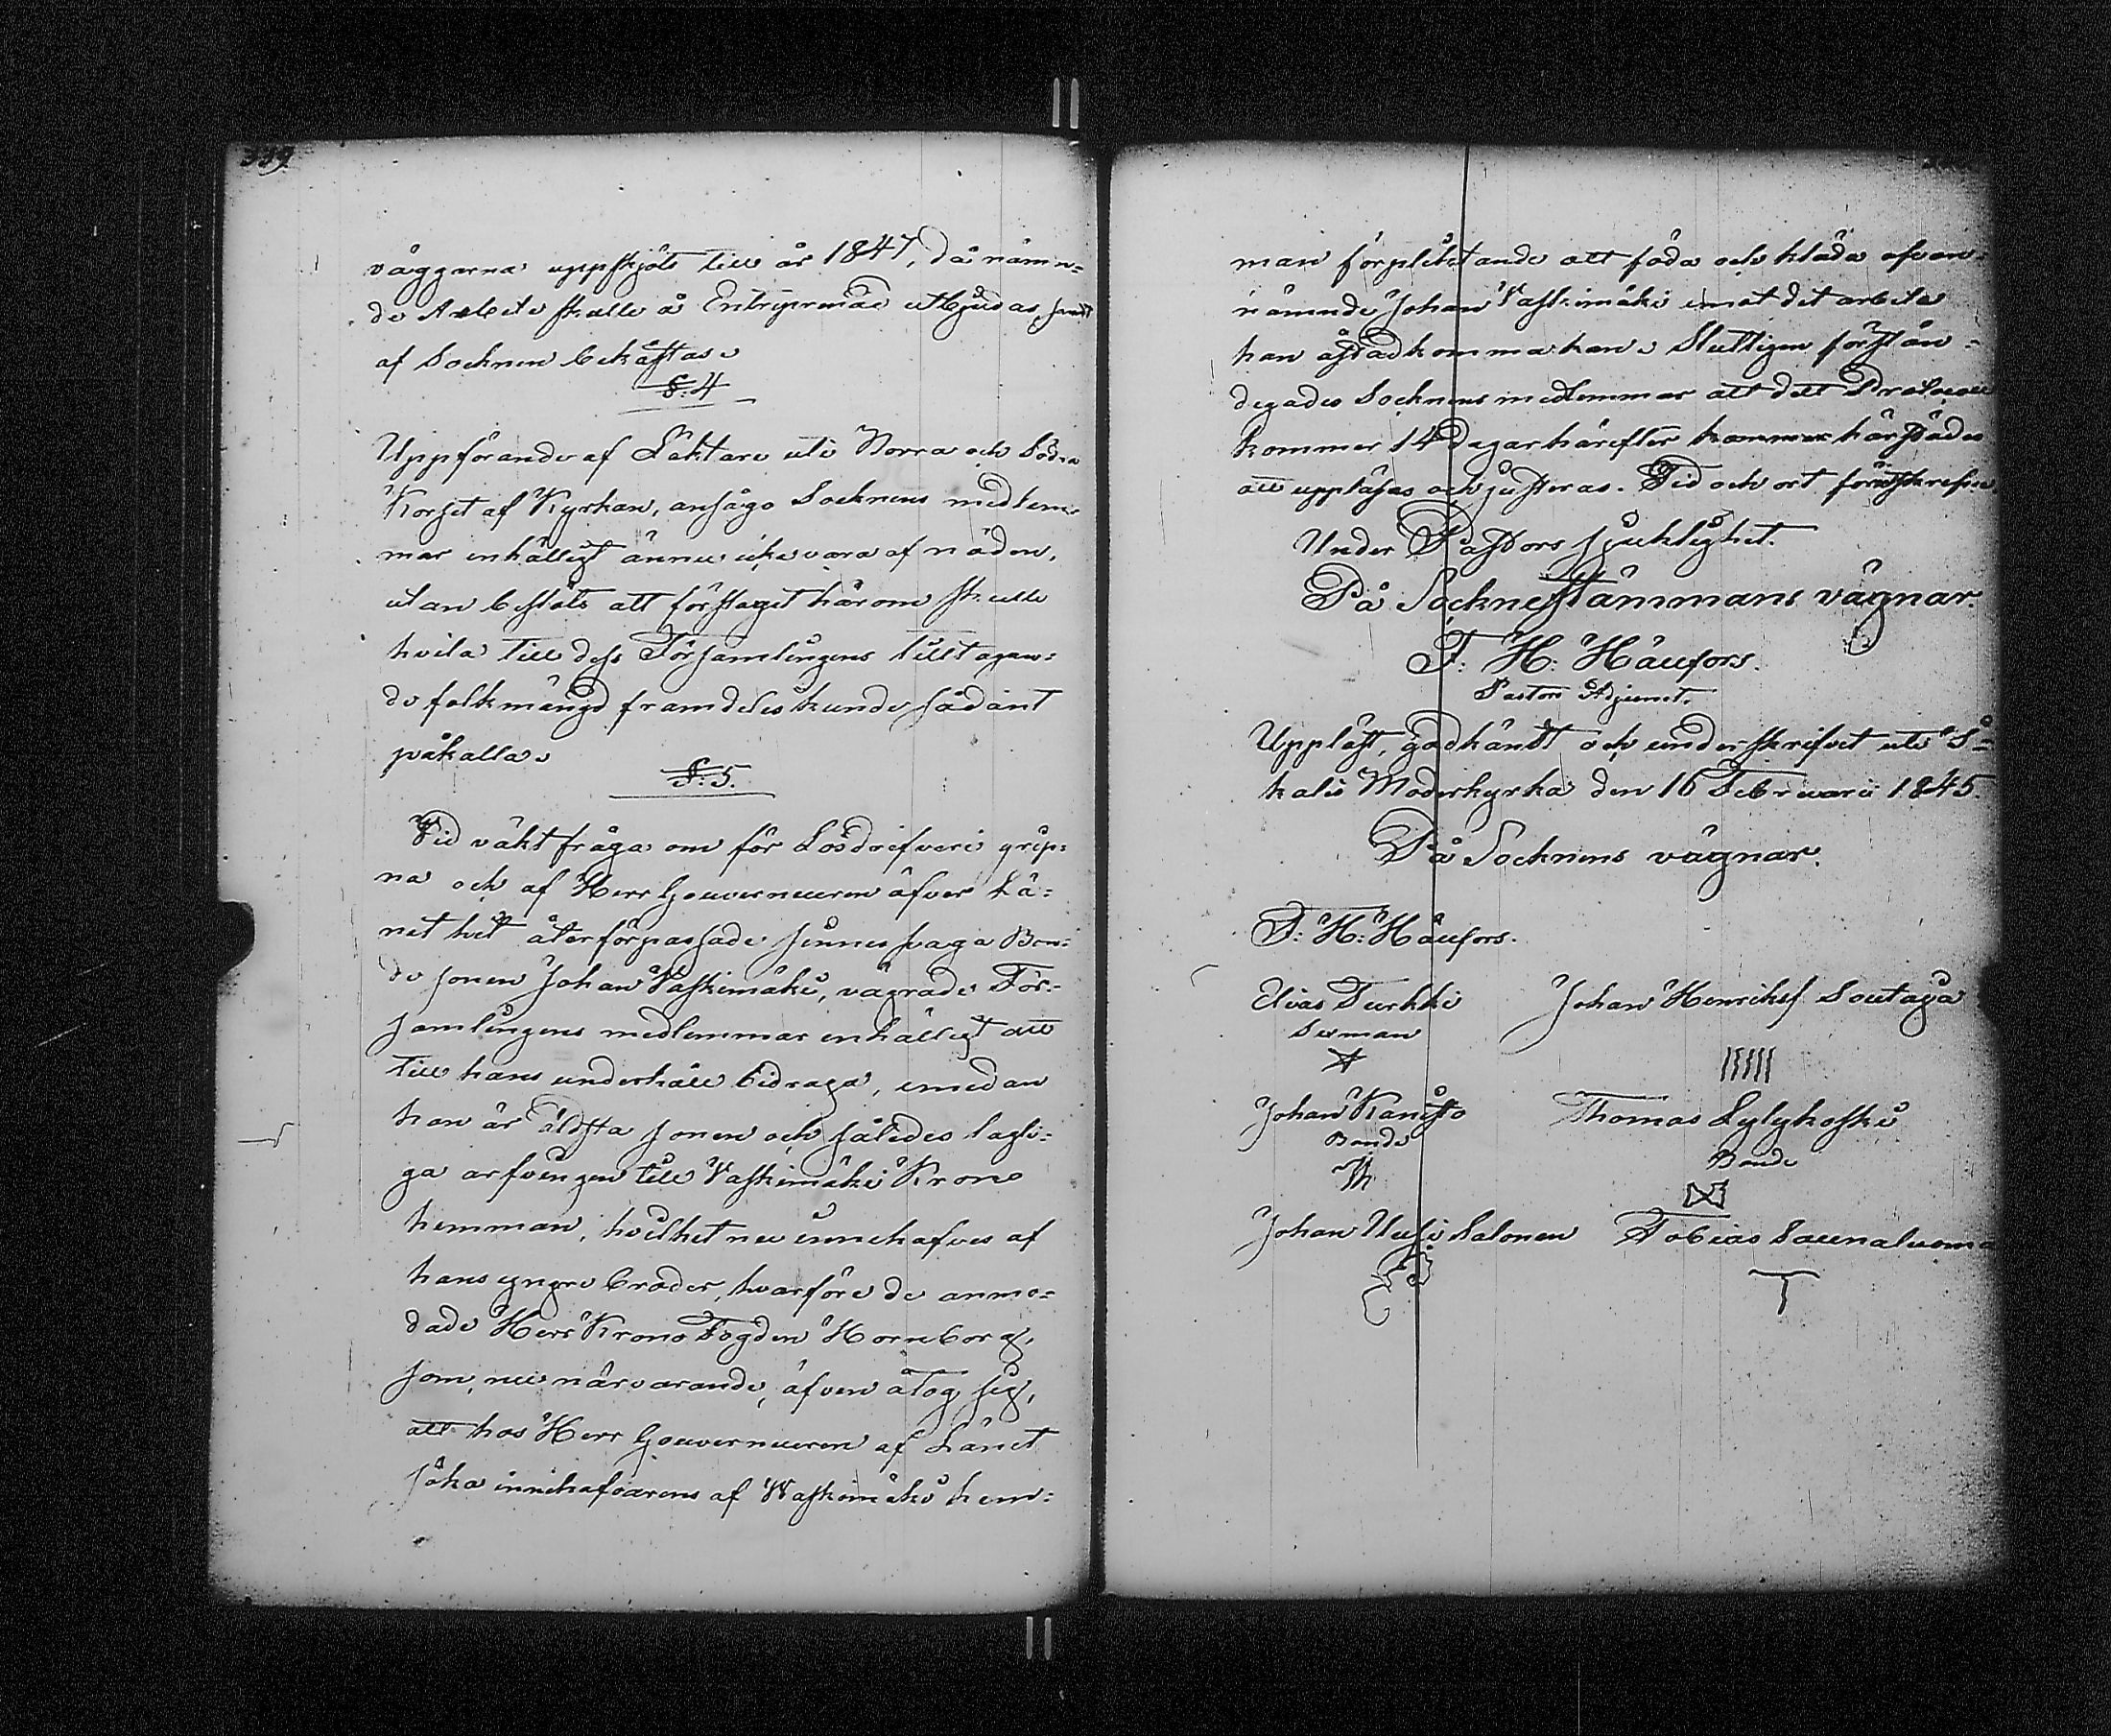 339
väggarna uppskjöts till år 1847, då nämn=
de Arbete skulle å Entreprenad utbjudas, samt
af Socknen bekåstas.
§: 4
Uppförande af Läktare uti Norra och Södra
Korset af Kyrkan, ansågo Socknens medlem=
mar enhälligt ännu icke vara af nöden,
utan beslöts att förslaget härom skulle
hvila till dess Församlingens tilltagan=
de folkmängd framdeles kunde sådant
påkalla.
§: 5.
Vid väkt fråga om för Lösdrifveri grip=
na och af Herr Gouverneuren öfver Lä=
net hit återförpassade sinnessvaga Bon=
de sonen Johan Vaskimäki, vägrade För=
samlingens medlemmar enhälligt att
till hans underhåll bidraga, emedan
han är äldsta sonen och således lagli=
ga arfvingen till Vaskimäki Krono
hemman, hvilket nu innehafves af
hans yngre broder, hvarföre de anmo=
dade Herr Krono Fogden Hornborg,
som, nu närvarande, äfven åtog sig,
att hos Herr Gouverneuren af Länet
söka innehafvarens af Vaskimäki hem=
man förpliktande att föda och kläda ofvan=
nämnde Johan Vaskimäki emot det arbete
han åstadkomma kan. Slutligen förstän=
degades Socknens medlemmar att detta Protocoll
kommer 14 dagar härefter kommer härstädes
att uppläsas och justeras. Tid och ort förutskrefne.
Under Pastors sjuklighet.
På Sockneståmmans vägnar.
F: H: Häufors.
Pastors Adjunct.
Uppläst, godkändt och underskrifvet uti I=
kalis Moderkyrka den 16 Februari 1845.
På Socknens vägnar.
F: H: Häufors.
Elias Turkki Johan Henrikss. Soutaja
Sexman
Johan Kanisto Thomas Lylykoski
Bonde Bonde
Johan Uusi Salonen Tobias Saunaluoma